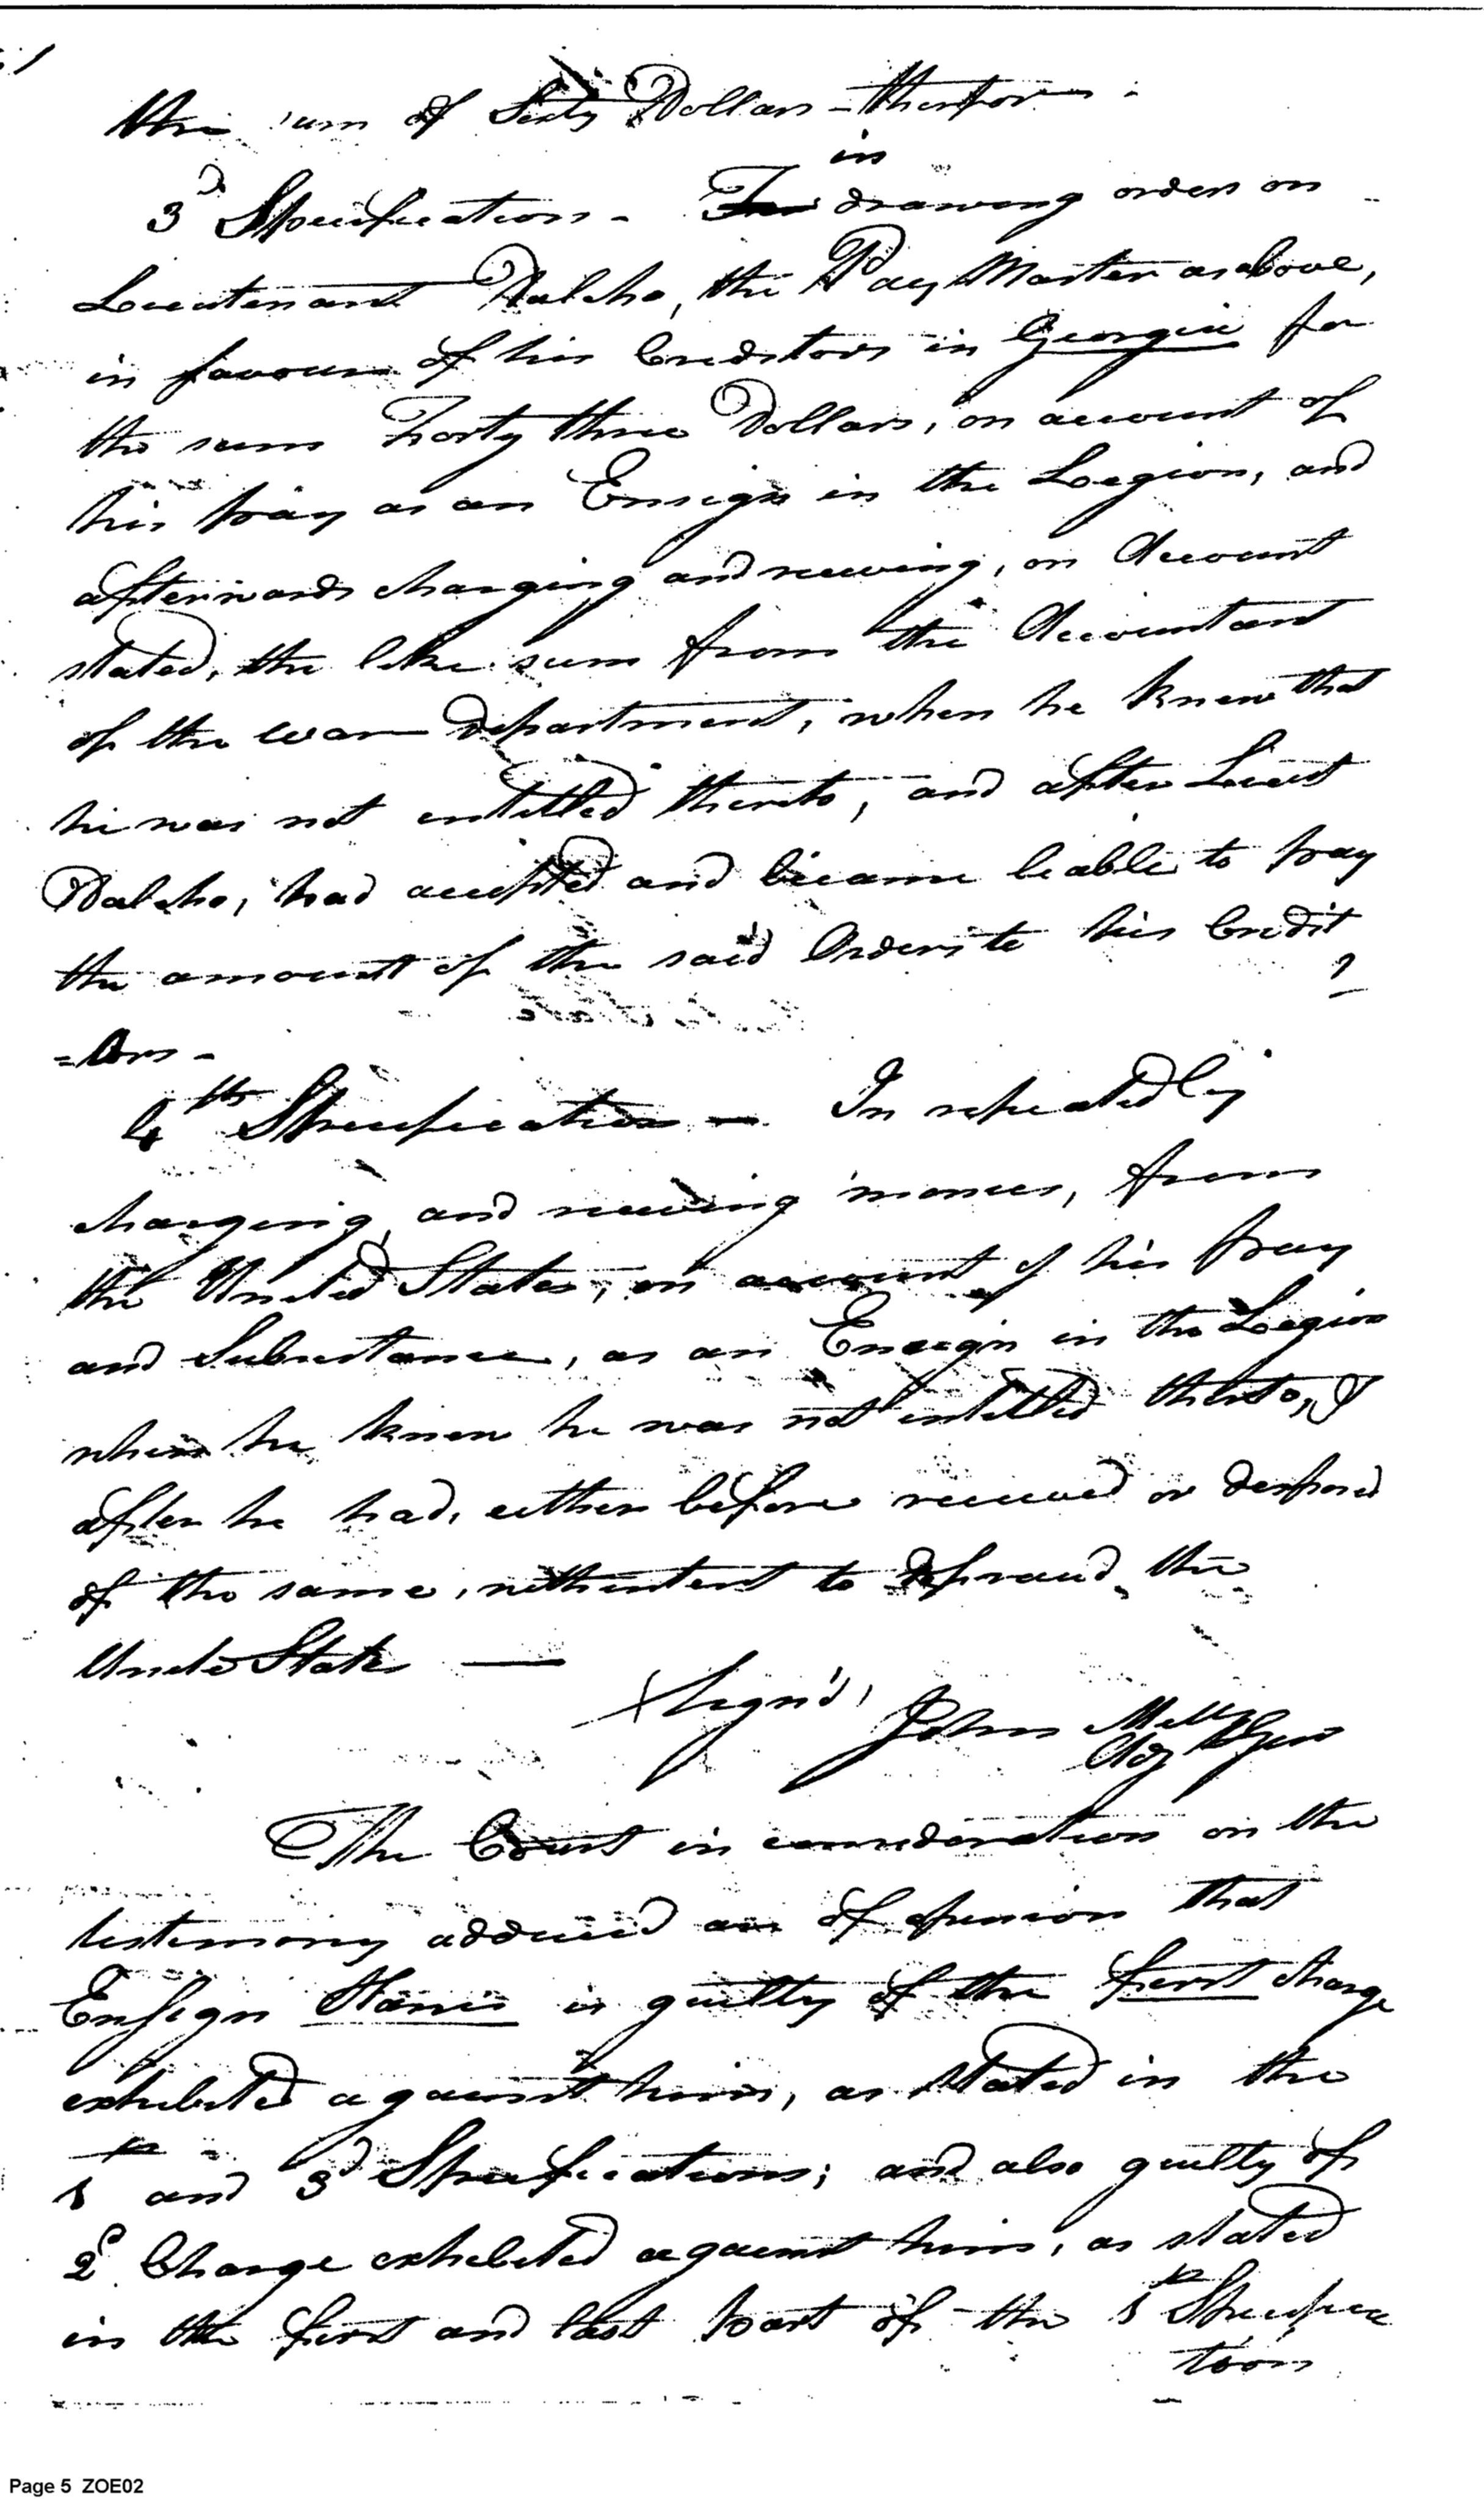 the sum of Sixty Dollars - therefor -
in
3d Specification - For drawing orders on
Lieutenant Dalcho, the Pay Master as above,
in favour of his Creditors in Georgia for
the sum Forty three Dollars, on account of
his pay as an Ensign in the Legion, and
afterwards charging and receiving, on Account
stated, the like sum from the Accountant
of the war department, when he knew that
he was not entitled thereto, and after Lieut
Dalcho, had accepted and became liable to pay
the amount of the said Orders to his Credit
=tors -
4th Specification - In repeatedly
charging, and receiving monies, from
the United States, on account of his pay
and Subsistance, as an Ensign in the Legion
when he knew he was not entitled thereto, &
after he had, either before received or disposed
of the same, with intent to defraud, the
United States —
(Sign'd) John Mills
Adj Gen
The Court in consideration on the
testimony adduced are of opinion that
Ensign Harris is guilty of the first charge
exhibited against him, as stated in the
1st and 3d Specifications; and also guilty of
2d Charge exhibited against him, as stated
in the first and last part of the 1st Specifica
tion
Page 5 ZOE02